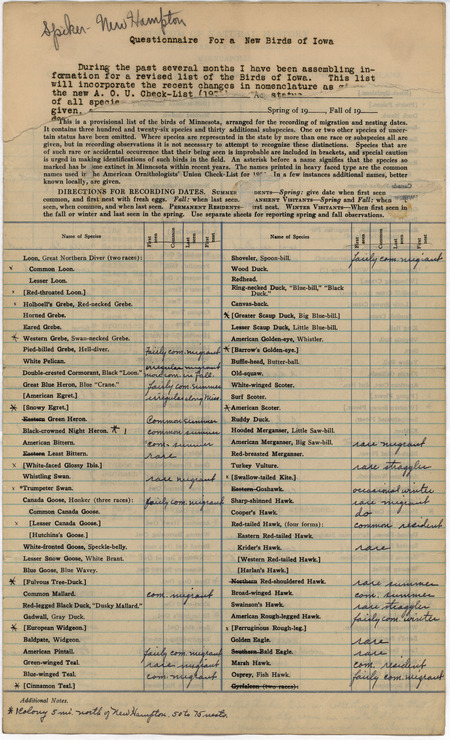 Spiker- New Hampton
Questionnaire For a New Birds of Iowa
During the past several months I have been assembling in-
formation for a revised list of the Birds of Iowa. This list
will incorporate the recent changes in nomenclature as
the new A. O. U. Check-List
of all species
given,
Spring of 19____, Fall of 19____
This is a provisional list of the birds of Minnesota, arranged for the recording of migration and nesting dates.
It contains three hundred and twenty-six species and thirty additional subspecies. One or two other species of uncer-
tain status have been omitted. Where species are represented in the state by more than one race or subspecies all are
given, but in recording observations it is not necessary to attempt to recognize these distinctions. Species that are
of such rare or accidental occurrence that their being seen is improbable are included in brackets, and special caution
is urged in making identifications of such birds in the field. An asterisk before a name signifies that the species so
marked has become extinct in Minnesota within recent years. The names printed in heavy faced type are the common
names used in the American Ornithologists' Union Check-List for In a few instances additional names, better
known locally, are given.
DIRECTIONS FOR RECORDING DATES. SUMMER DENTS—Spring: give date when first seen
common, and first nest with fresh eggs. Fall: when last seen. ANSIENT VISITANTS—Spring and Fall: when
seen, when common, and when last seen. PERMANENT RESIDENTS— rst nest. WINTER VISITANTS—When first seen in
the fall or winter and last seen in the spring. Use separate sheets for reporting spring and fall observations.
Name of Species First seen Common Last seen First nest
Loon, Great Northern Diver (two races):
Common Loon.
Lesser Loon.
[Red-throated Loon.]
Holboell's Grebe, Red-necked Grebe.
Horned Grebe.
Eared Grebe.
* Western Grebe, Swan-necked Grebe.
Pied-billed Grebe, Hell-diver. fairly com. migrant
White Pelican. irregular migrant
Double-crested Cormorant, Black "Loon." more com. in fall
Great Blue Heron, Blue "Crane." fairly com. summer
[American Egret.] irregular along Miss.
* [Snowy Egret.]
Eastern Green Heron. Common summer
Black-crowned Night Heron. *1 common summer
American Bittern. com. summer
Eastern Least Bittern. rare
[White-faced Glossy Ibis.]
Whistling Swan. rare migrant
*Trumpeter Swan.
Canada Goose, Honker (three races): fairly com. migrant
Common Canada Goose.
[Lesser Canada Goose.]
[Hutchins's Goose.]
White-fronted Goose, Speckle-belly.
Lesser Snow Goose, White Brant.
Blue Goose, Blue Wavey.
* [Fulvous Tree-Duck.]
Common Mallard. com. migrant
Red-legged Black Duck, "Dusky Mallard."
Gadwall, Gray Duck.
* [European Widgeon.]
Baldpate, Widgeon.
American Pintail. fairly com. migrant
Green-winged Teal. rare migrant
Blue-winged Teal. com. migrant
* [Cinnamon Teal.]
Name of Species First seen Common Last seen First nest
Shoveler, Spoon-bill. fairly com. migrant
Wood Duck.
Redhead.
Ring-necked Duck, "Blue-bill," "Black
Duck."
Canvas-back.
* [Greater Scaup Duck, Big Blue-bill.]
Lesser Scaup Duck, Little Blue-bill.
American Golden-eye, Whistler.
* [Barrow's Golden-eye.]
Buffle-head, Butter-ball.
Old-squaw.
White-winged Scoter.
Surf Scoter.
* American Scoter.
Ruddy Duck.
Hooded Merganser, Little Saw-bill.
American Merganser, Big Saw-bill. rare migrant
Red-breasted Merganser.
Turkey Vulture. rare straggler
[Swallow-tailed Kite.]
Eastern Goshawk. occasional winter
Sharp-shinned Hawk. rare migrant
Cooper's Hawk. do
Red-tailed Hawk, (four forms): common resident
Eastern Red-tailed Hawk.
Krider's Hawk. rare
[Western Red-tailed Hawk.]
[Harlan's Hawk.]
Northern Red-shouldered Hawk. rare summer
Broad-winged Hawk. com. summer
Swainson's Hawk. rare straggler
American Rough-legged Hawk. fairly com winter
[Ferruginous Rough-leg.]
Golden Eagle. rare
Southern Bald Eagle. rare
Marsh Hawk. com. resident
Osprey, Fish Hawk. fairly com. migrant
Gyrfalcon (two races):
Additional Notes.
*1 Colony 5 mi. north of New Hampton. 50 to 75 nests.